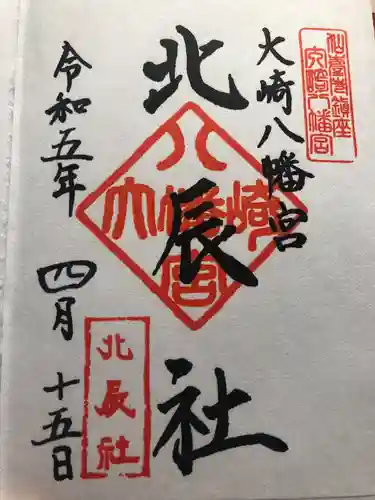 仙臺鎮座
大崎八幡宮
大崎八幡宮
北辰社
大崎八幡宮
北辰社
令和五年
四月
十五日